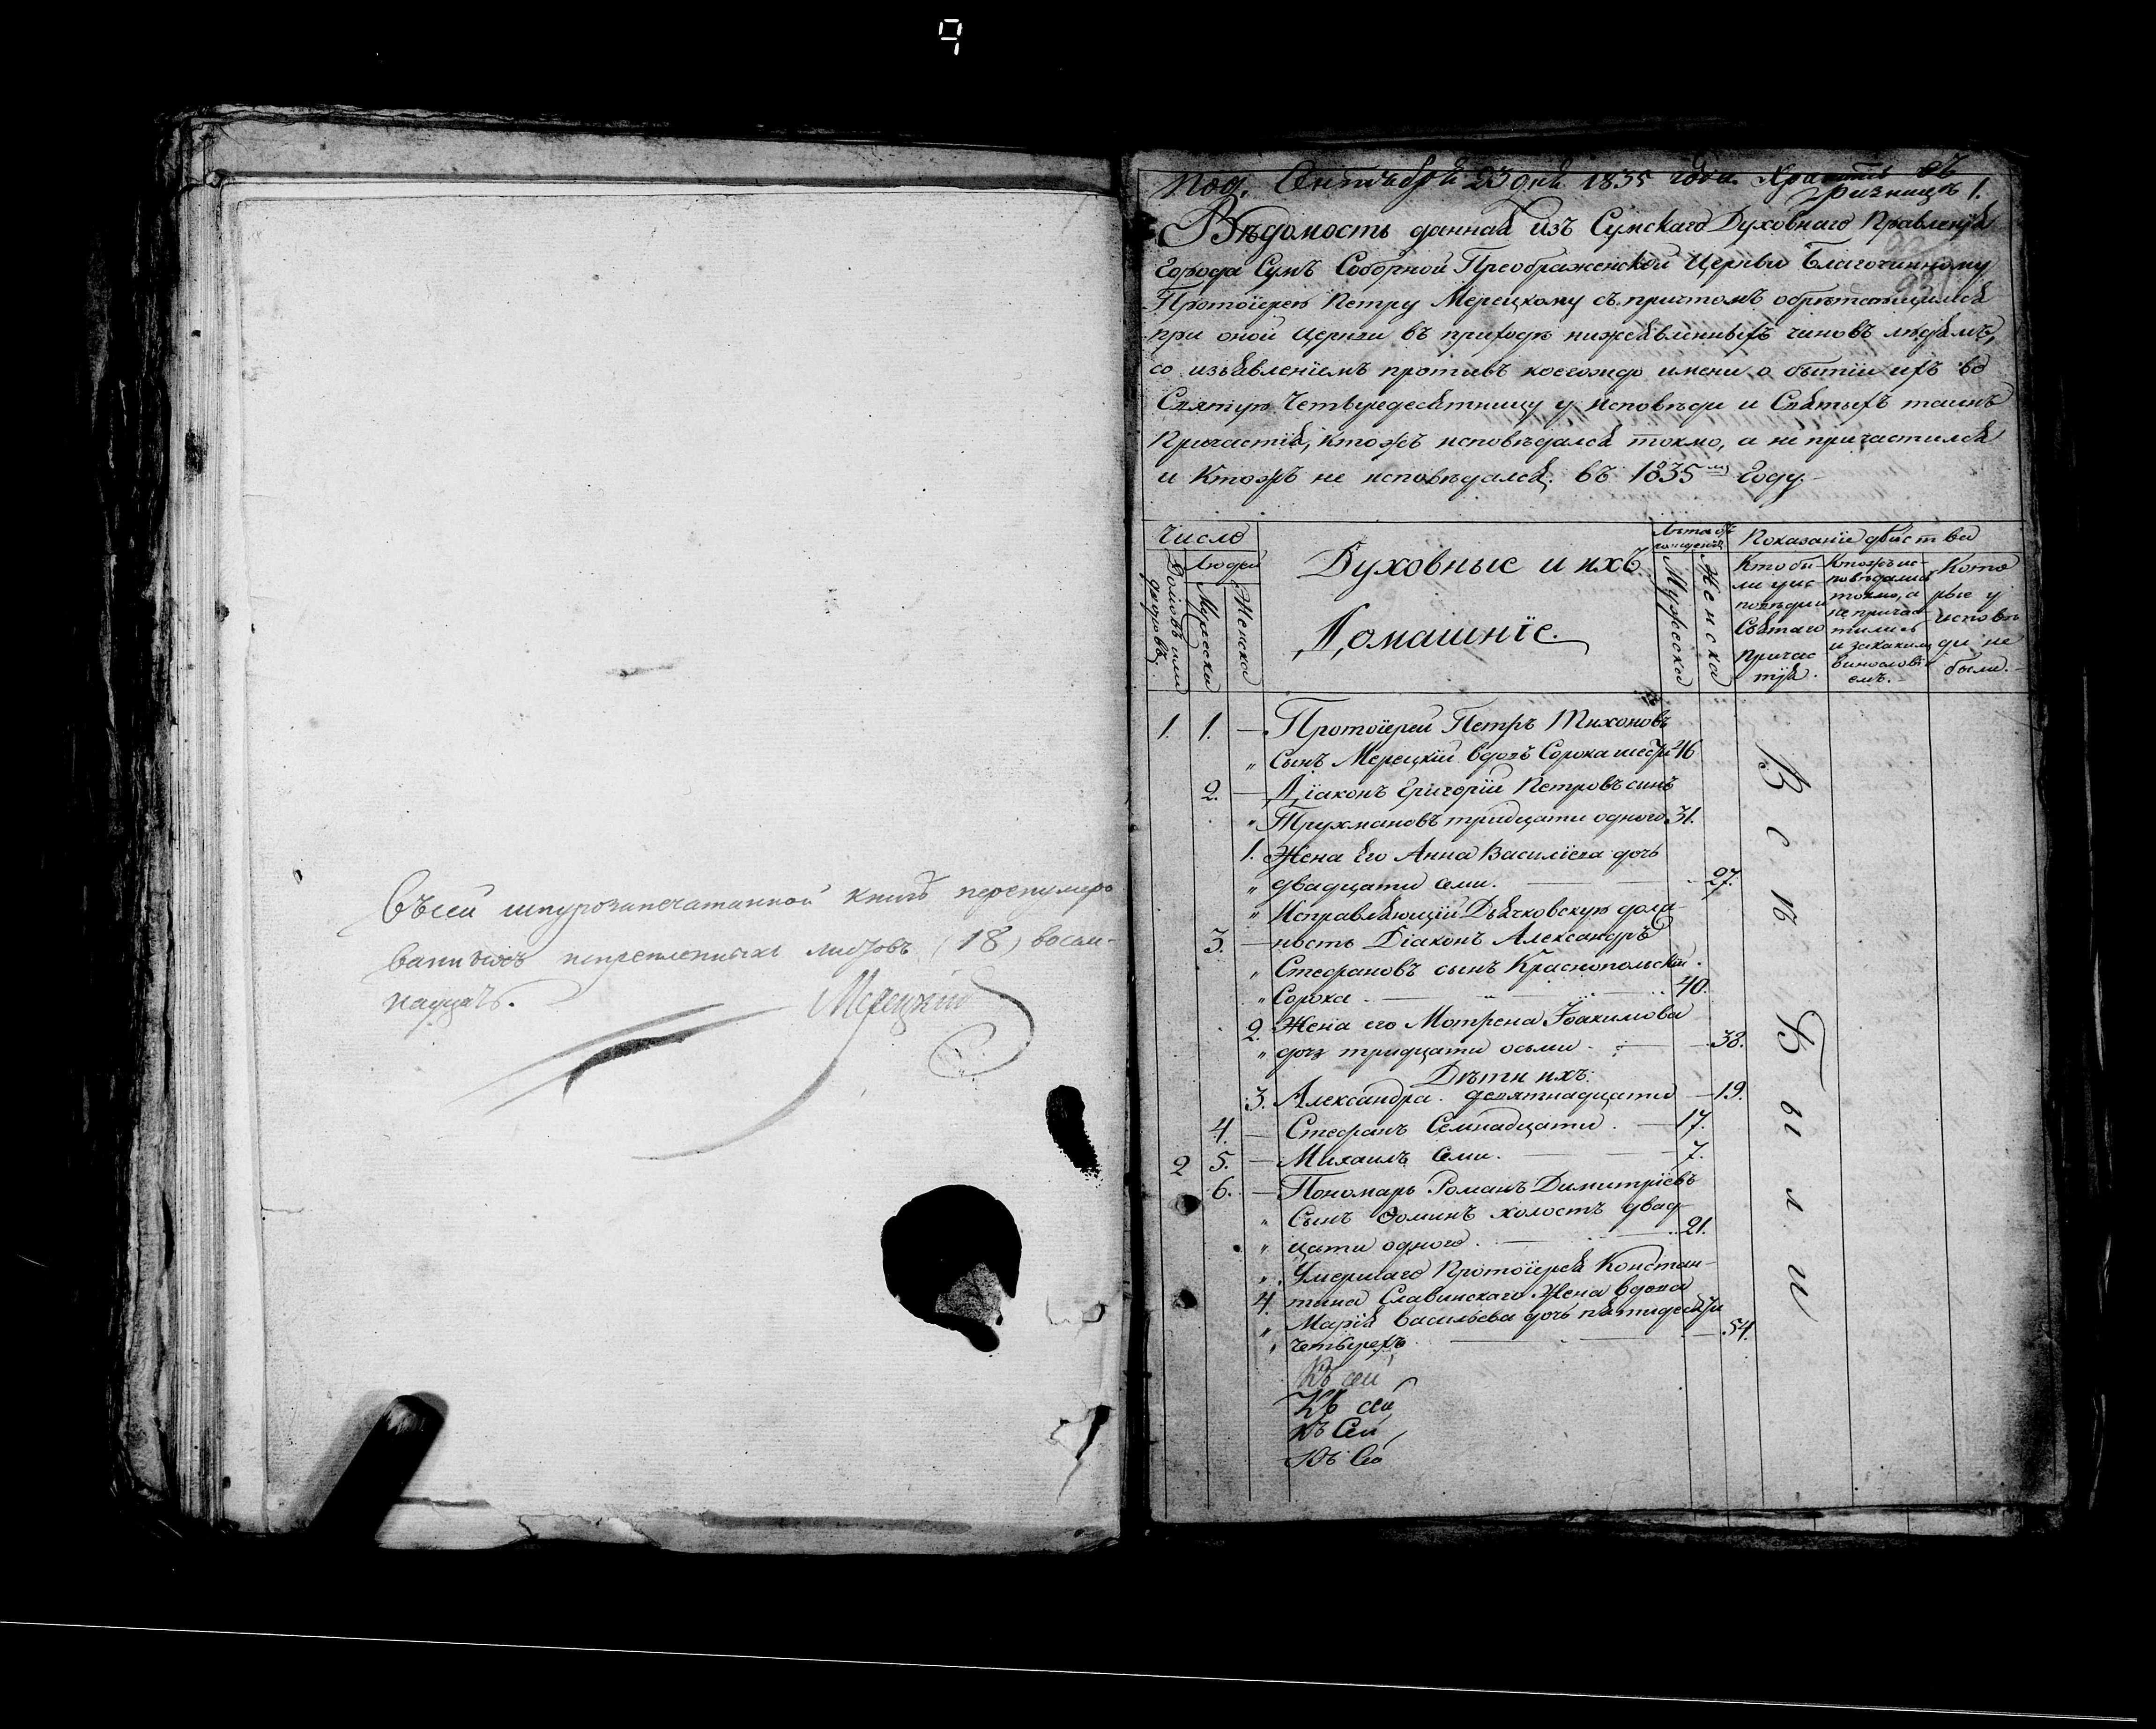 9
Въ сей шнурозапечатанной книгѣ перенумеро
ванныхъ листовъ (18) восем-
надцать.
Мерецкій
Под. Сентября 23 дня 1835 года. Хранить въ
ризницѣ 1.
Вѣдомость данная изъ Сумскаго Духовнаго Правленія
Города Сумъ Соборной Преображенской Церкви Благочинному
Протоіерею Петру Мерецкому съ причтомъ обрѣтающимся
при оной Церкви въ приходѣ нижеявленныхъ чиновъ людямъ,
со изъявленіемъ противъ коегождо имени о бытіи ихъ во
Святую Четыредесятницу у исповѣди и Святыхъ таинъ
Причастія, ктожъ исповѣдался токмо, а не причастился
и Ктожъ не исповѣдался, въ 1835мъ Году.
Число
Домовъ или дворовъ.
Людей
Мужеска
Женска
Духовные и ихъ
Домашніе.
Лѣта отъ рожденія
Мужеска
Женска
Показаніе дѣйства
Кто бы-
ли у ис
повѣди и
Святаго
Причас
тія.
Ктожъ ис-
повѣдались
токмо, а
не причас-
тились
и за какимъ
винослові
емъ.
Кото
рые у
исповѣ
ди не
были.
1. 1. — Протоіерей Петръ Тихоновъ
„ Сынъ Мерецкій вдовъ Сорока шести 46
2. — Діаконъ Григорій Петровъ сынъ
„ Трухмановъ тридцати одного 31.
1. Жена Его Анна Василіева дочь
„ двадцати семи. — 27.
„ Исправляющій Дьячковскую дол-
3. — ность Діаконъ Александръ
„ Стефановъ сынъ Краснопольскій.
„ Сорока — 40.
2. Жена его Мотрена Іоакимова
„ дочь тридцати осьми — 38.
Дѣти ихъ:
3. Александра. девятнадцати — 19.
4. — Стефанъ Семнадцати. — 17.
2 5. — Михаилъ Семи. — 7.
6. — Пономарь Романъ Димитріевъ
„ Сынъ Ѳоминъ холостъ двад-
„ цати одного. — 21.
„ Умершаго Протоіерея Констан-
4. тина Славинскаго Жена вдова
„ Марія Васильева дочь пятидесяти
„ четырехъ — 54.
Къ сей
Къ сей
Къ Сей
Къ Сей
Всѣ Были